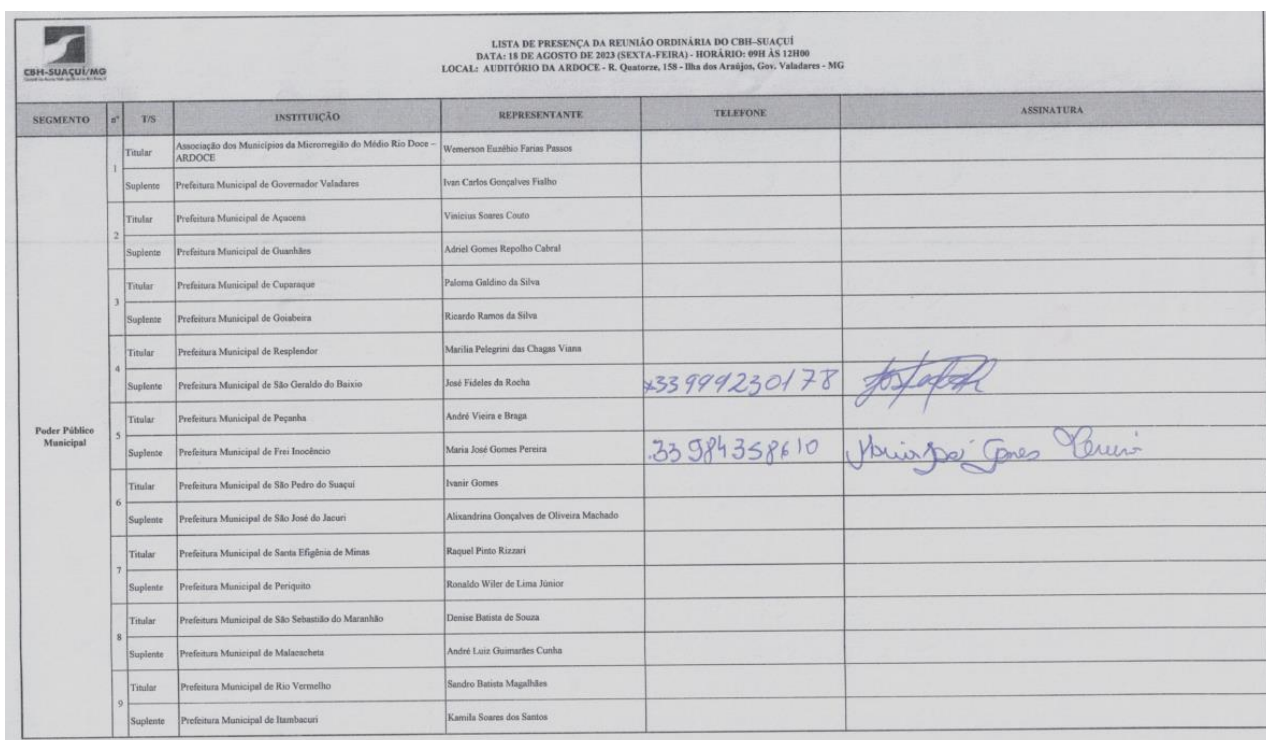 CBH-SUAÇUÍ/MG
LISTA DE PRESENÇA DA REUNIÃO ORDINÁRIA DO CBH-SUAÇUÍ
DATA: 18 DE AGOSTO DE 2023 (SEXTA-FEIRA) - HORÁRIO: 09H ÀS 12H00
LOCAL: AUDITÓRIO DA ARDOCE - R. Quatorze, 158 - Ilha dos Araújos, Gov. Valadares - MG
SEGMENTO nº T/S INSTITUIÇÃO REPRESENTANTE TELEFONE ASSINATURA
Poder Público
Municipal
1
Titular Associação dos Municípios da Microrregião do Médio Rio Doce –
ARDOCE Wemerson Euzébio Farias Passos
Suplente Prefeitura Municipal de Governador Valadares Ivan Carlos Gonçalves Fialho
2
Titular Prefeitura Municipal de Açucena Vinicius Soares Couto
Suplente Prefeitura Municipal de Guanhães Adriel Gomes Repolho Cabral
3
Titular Prefeitura Municipal de Cuparaque Paloma Galdino da Silva
Suplente Prefeitura Municipal de Goiabeira Ricardo Ramos da Silva
4
Titular Prefeitura Municipal de Resplendor Marília Pelegrini das Chagas Viana
Suplente Prefeitura Municipal de São Geraldo do Baixio José Fideles da Rocha 33 999230178
5
Titular Prefeitura Municipal de Peçanha André Vieira e Braga
Suplente Prefeitura Municipal de Frei Inocêncio Maria José Gomes Pereira 33 984358610 Maria José Gomes Pereira
6
Titular Prefeitura Municipal de São Pedro do Suaçuí Ivanir Gomes
Suplente Prefeitura Municipal de São José do Jacuri Alixandrina Gonçalves de Oliveira Machado
7
Titular Prefeitura Municipal de Santa Efigênia de Minas Raquel Pinto Rizzari
Suplente Prefeitura Municipal de Periquito Ronaldo Wiler de Lima Júnior
8
Titular Prefeitura Municipal de São Sebastião do Maranhão Denise Batista de Souza
Suplente Prefeitura Municipal de Malacacheta André Luiz Guimarães Cunha
9
Titular Prefeitura Municipal de Rio Vermelho Sandro Batista Magalhães
Suplente Prefeitura Municipal de Itambacuri Kamila Soares dos Santos